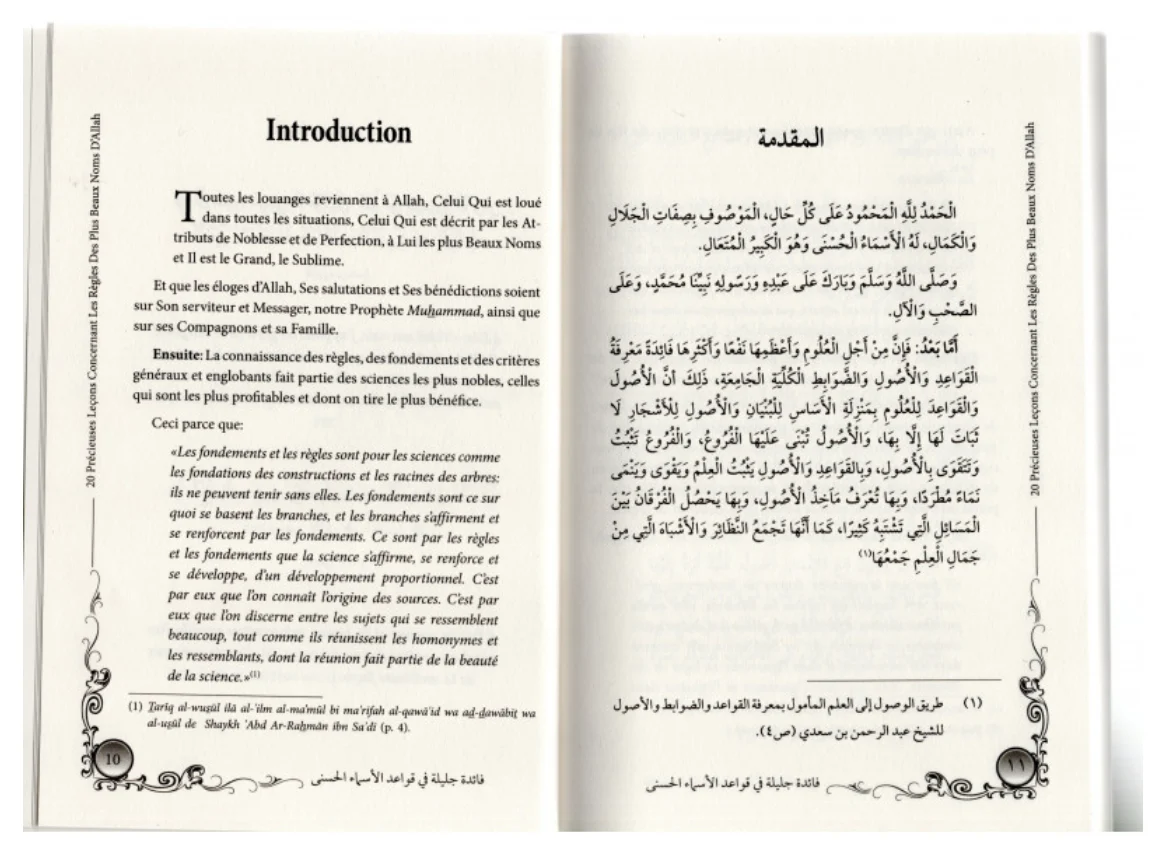 Introduction
Toutes les louanges reviennent à Allah, Celui Qui est loué
dans toutes les situations, Celui Qui est décrit par les At-
tributs de Noblesse et de Perfection, à Lui les plus Beaux Noms
et Il est le Grand, le Sublime.
Et que les éloges d'Allah, Ses salutations et Ses bénédictions soient
sur Son serviteur et Messager, notre Prophète Muḥammad, ainsi que
sur ses Compagnons et sa Famille.
Ensuite: La connaissance des règles, des fondements et des critères
généraux et englobants fait partie des sciences les plus nobles, celles
qui sont les plus profitables et dont on tire le plus bénéfice.
Ceci parce que:
«Les fondements et les règles sont pour les sciences comme
les fondations des constructions et les racines des arbres:
ils ne peuvent tenir sans elles. Les fondements sont ce sur
quoi se basent les branches, et les branches s'affirment et
se renforcent par les fondements. Ce sont par les règles
et les fondements que la science s'affirme, se renforce et
se développe, d'un développement proportionnel. C'est
par eux que l'on connaît l'origine des sources. C'est par
eux que l'on discerne entre les sujets qui se ressemblent
beaucoup, tout comme ils réunissent les homonymes et
les ressemblants, dont la réunion fait partie de la beauté
de la science.»(1)
(1) Ṯarîq al-wuṣûl ilâ al-'ilm al-ma'mûl bi ma'rifah al-qawâ'id wa aḏ-ḏawâbiṯ wa
al-uṣûl de Shaykh 'Abd Ar-Raḥmân ibn Sa'dî (p. 4).
10
فائدة جليلة في قواعد الأسماء الحسنى
20 Précieuses Leçons Concernant Les Règles Des Plus Beaux Noms D'Allah
المقدمة
الْحَمْدُ لِلَّهِ الْمَحْمُودُ عَلَى كُلِّ حَالٍ، الْمَوْصُوفِ بِصِفَاتِ الْجَلَالِ
وَالْكَمَالِ، لَهُ الْأَسْمَاءُ الْحُسْنَى وَهُوَ الْكَبِيرُ الْمُتَعَالِ.
وَصَلَّى اللَّهُ وَسَلَّمَ وَبَارَكَ عَلَى عَبْدِهِ وَرَسُولِهِ نَبِيِّنَا مُحَمَّدٍ، وَعَلَى
الصَّحْبِ وَالْآلِ.
أَمَّا بَعْدُ: فَإِنَّ مِنْ أَجْلِ الْعُلُومِ وَأَعْظَمِهَا نَفْعًا وَأَكْثَرِهَا فَائِدَةً مَعْرِفَةُ
الْقَوَاعِدِ وَالْأُصُولِ وَالضَّوَابِطِ الْكُلِّيَّةِ الْجَامِعَةِ، ذَلِكَ أَنَّ الْأُصُولَ
وَالْقَوَاعِدَ لِلْعُلُومِ بِمَنْزِلَةِ الْأَسَاسِ لِلْبُنْيَانِ وَالْأُصُولِ لِلْأَشْجَارِ لَا
ثَبَاتَ لَهَا إِلَّا بِهَا، وَالْأُصُولُ تُبْنَى عَلَيْهَا الْفُرُوعُ، وَالْفُرُوعُ تَثْبُتُ
وَتَتَقَوَى بِالْأُصُولِ، وَبِالْقَوَاعِدِ وَالْأُصُولِ يَثْبُتُ الْعِلْمُ وَيَقْوَى وَيَنْمَى
نَمَاءً مُطَّرَدًا، وَبِهَا تُعْرَفُ مَآخِذُ الْأُصُولِ، وَبِهَا يَحْصُلُ الْفُرْقَانُ بَيْنَ
الْمَسَائِلِ الَّتِي تَشْتَبِهُ كَثِيرًا، كَمَا أَنَّهَا تَجْمَعُ النَّظَائِرَ وَالْأَشْبَاهَ الَّتِي مِنْ
جَمَالِ الْعِلْمِ جَمْعُهَا(١)
(١) طريق الوصول إلى العلم المأمول بمعرفة القواعد والضوابط والأصول
للشيخ عبد الرحمن بن سعدي (ص٤).
١١
فائدة جليلة في قواعد الأسماء الحسنى
20 Précieuses Leçons Concernant Les Règles Des Plus Beaux Noms D'Allah